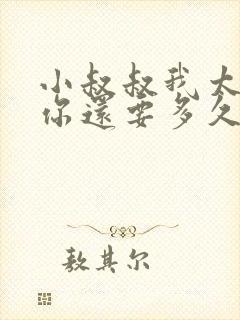 小叔叔我太
你還要多久
敖其尔